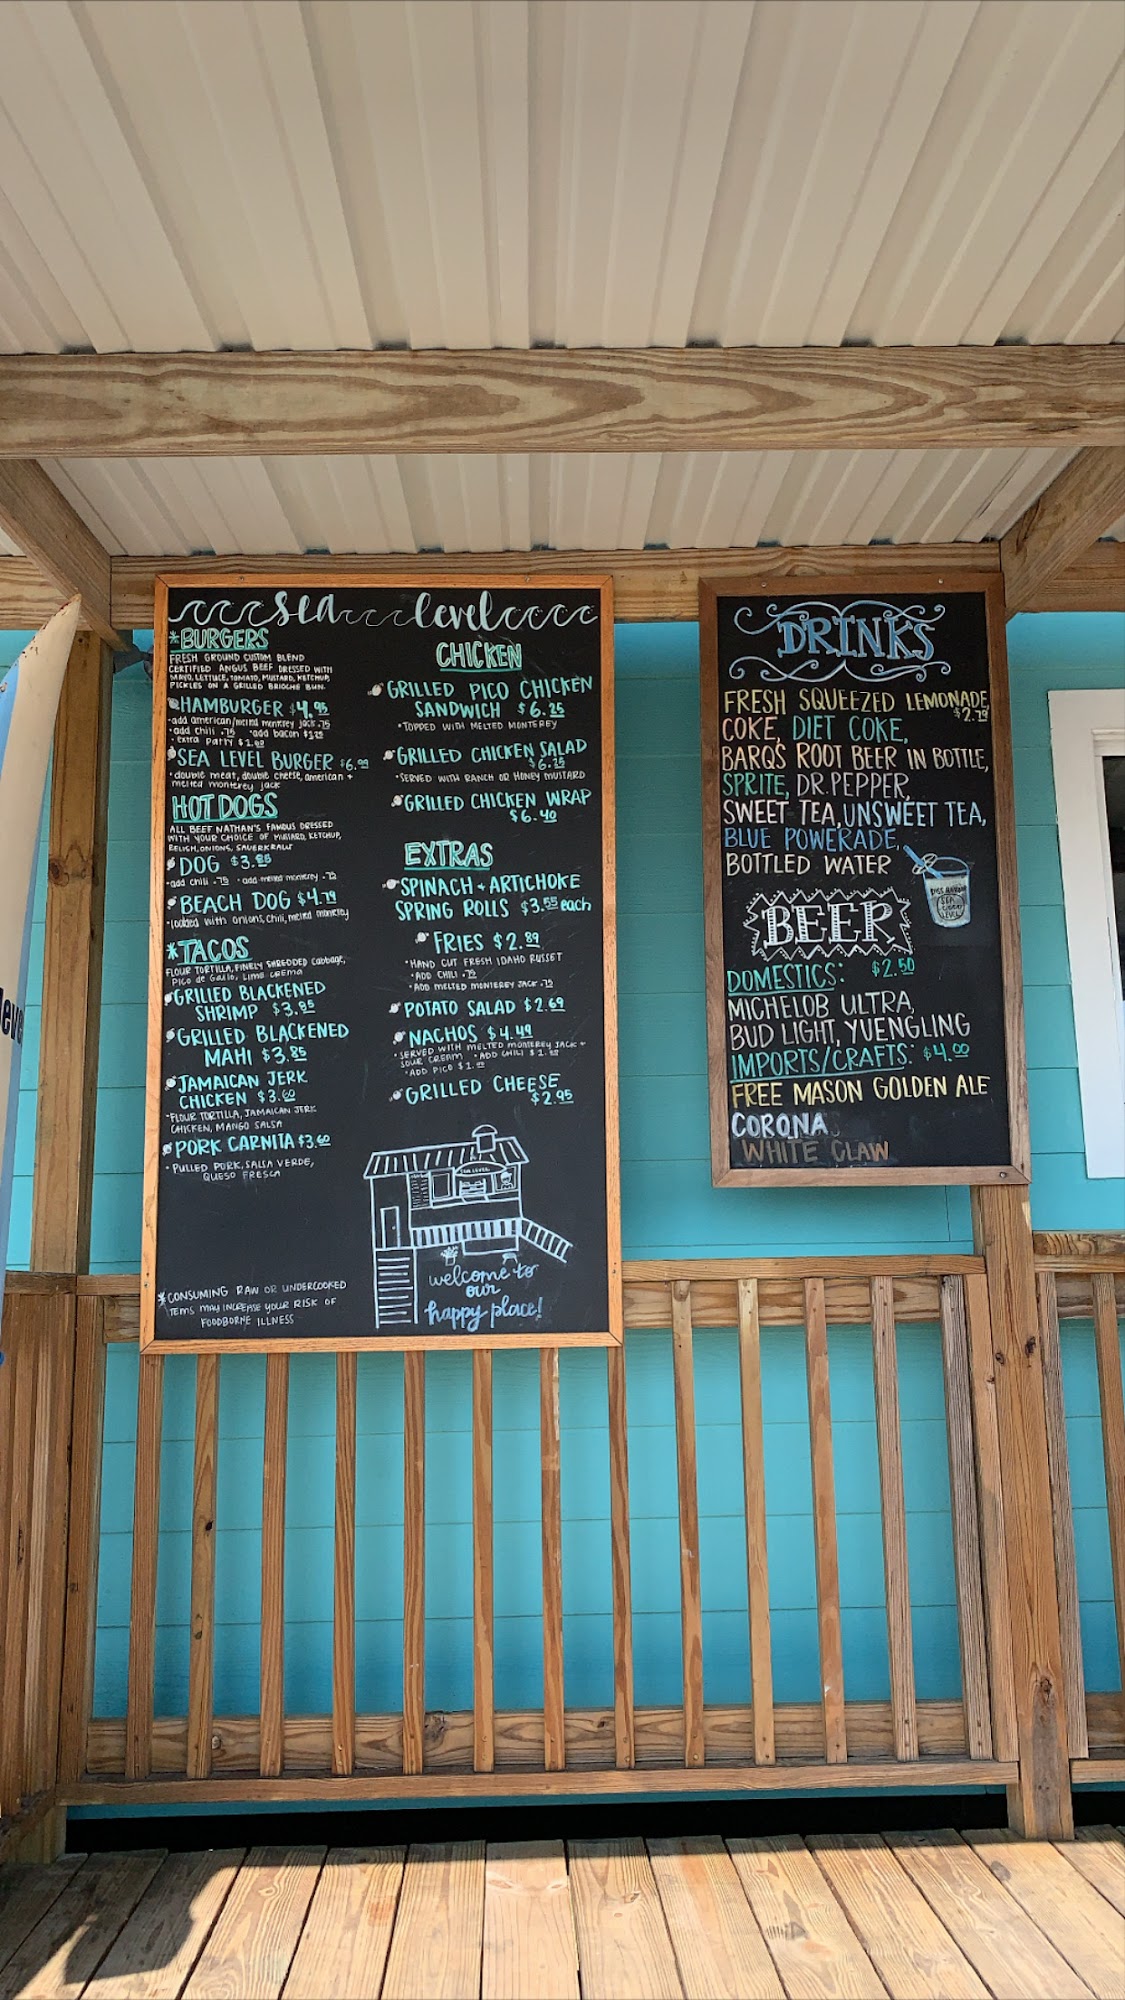 sea level
*BURGERS
FRESH GROUND CUSTOM BLEND
CERTIFIED ANGUS BEEF DRESSED WITH
MAYO, LETTUCE, TOMATO, MUSTARD, KETCHUP,
PICKLES ON A GRILLED BRIOCHE BUN.
HAMBURGER $4.95
•add american/melted monterey jack .75
•add chili .75 •add bacon $1.25
•extra patty $1.00
SEA LEVEL BURGER $6.99
•double meat, double cheese, american +
melted monterey jack
HOT DOGS
ALL BEEF NATHAN'S FAMOUS DRESSED
WITH YOUR CHOICE OF MUSTARD, KETCHUP,
RELISH, ONIONS, SAUERKRAUT
DOG $3.85
•add chili .75 •add melted monterey .75
BEACH DOG $4.79
•loaded with onions, chili, melted monterey
*TACOS
FLOUR TORTILLA, FINELY SHREDDED cabbage,
PICO de GALLO, LIME CREMA
GRILLED BLACKENED
SHRIMP $3.85
GRILLED BLACKENED
MAHI $3.85
JAMAICAN JERK
CHICKEN $3.60
•FLOUR TORTILLA, JAMAICAN JERK
CHICKEN, MANGO SALSA
PORK CARNITA $3.60
•PULLED PORK, SALSA VERDE,
QUESO FRESCA
*CONSUMING RAW OR UNDERCOOKED
ITEMS MAY INCREASE YOUR RISK OF
FOODBORNE ILLNESS
CHICKEN
GRILLED PICO CHICKEN
SANDWICH $6.25
•TOPPED WITH MELTED MONTEREY
GRILLED CHICKEN SALAD
$6.25
•SERVED WITH RANCH OR HONEY MUSTARD
GRILLED CHICKEN WRAP
$6.40
EXTRAS
SPINACH + ARTICHOKE
SPRING ROLLS $3.55 each
FRIES $2.89
•HAND CUT FRESH IDAHO RUSSET
•ADD CHILI .75
•ADD MELTED MONTEREY JACK .75
POTATO SALAD $2.69
NACHOS $4.49
•SERVED WITH MELTED MONTEREY JACK +
SOUR CREAM •ADD CHILI
•ADD PICO
GRILLED CHEESE
$2.95
SEA LEVEL
welcome to
our
happy place!
DRINKS
FRESH SQUEEZED LEMONADE,
$2.79
COKE, DIET COKE,
BARQS ROOT BEER IN BOTTLE,
SPRITE, DR. PEPPER,
SWEET TEA, UNSWEET TEA,
BLUE POWERADE,
BOTTLED WATER
SEA
LEVEL
BEER
DOMESTICS: $2.50
MICHELOB ULTRA,
BUD LIGHT, YUENGLING
IMPORTS/CRAFTS: $4.00
FREE MASON GOLDEN ALE
CORONA
WHITE CLAW